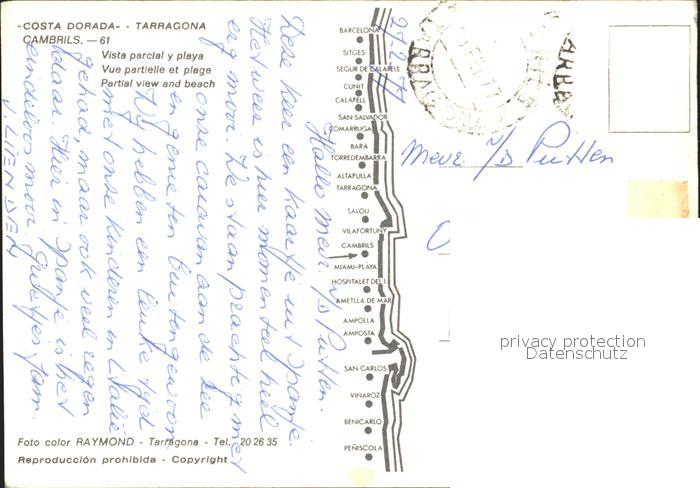 "COSTA DORADA" - TARRAGONA
CAMBRILS. — 61
Vista parcial y playa
Vue partielle et plage
Partial view and beach
Hallo Mevr. v/d Putten.
Deze keer een kaartje uit Spanje.
Het weer is hier momenteel heel
erg mooi. We staan prachtig met
onze caravan aan de zee
en genieten buitengewoon.
Wij hebben een leuke tijd
met onze kinderen in Italie
gehad, maar ook veel regen
daar. Hier in Spanje is het
eindeloos mooi. Groetjes fam.
BARCELONA
SITGES
SEGUR DE CALAFELL
CUNIT
CALAFELL
SAN SALVADOR
COMARRUGA
BARA
TORREDEMBARRA
ALTAFULLA
TARRAGONA
SALOU
VILAFORTUNY
CAMBRILS
MIAMI-PLAYA
HOSPITALET DEL I.
AMETLLA DE MAR
AMPOLLA
AMPOSTA
SAN CARLOS
VINAROZ
BENICARLO
PEÑISCOLA
Mevr v/d Putten
privacy protection
Datenschutz
Foto color RAYMOND - Tarragona - Tel. 20 26 35
Reproducción prohibida - Copyright